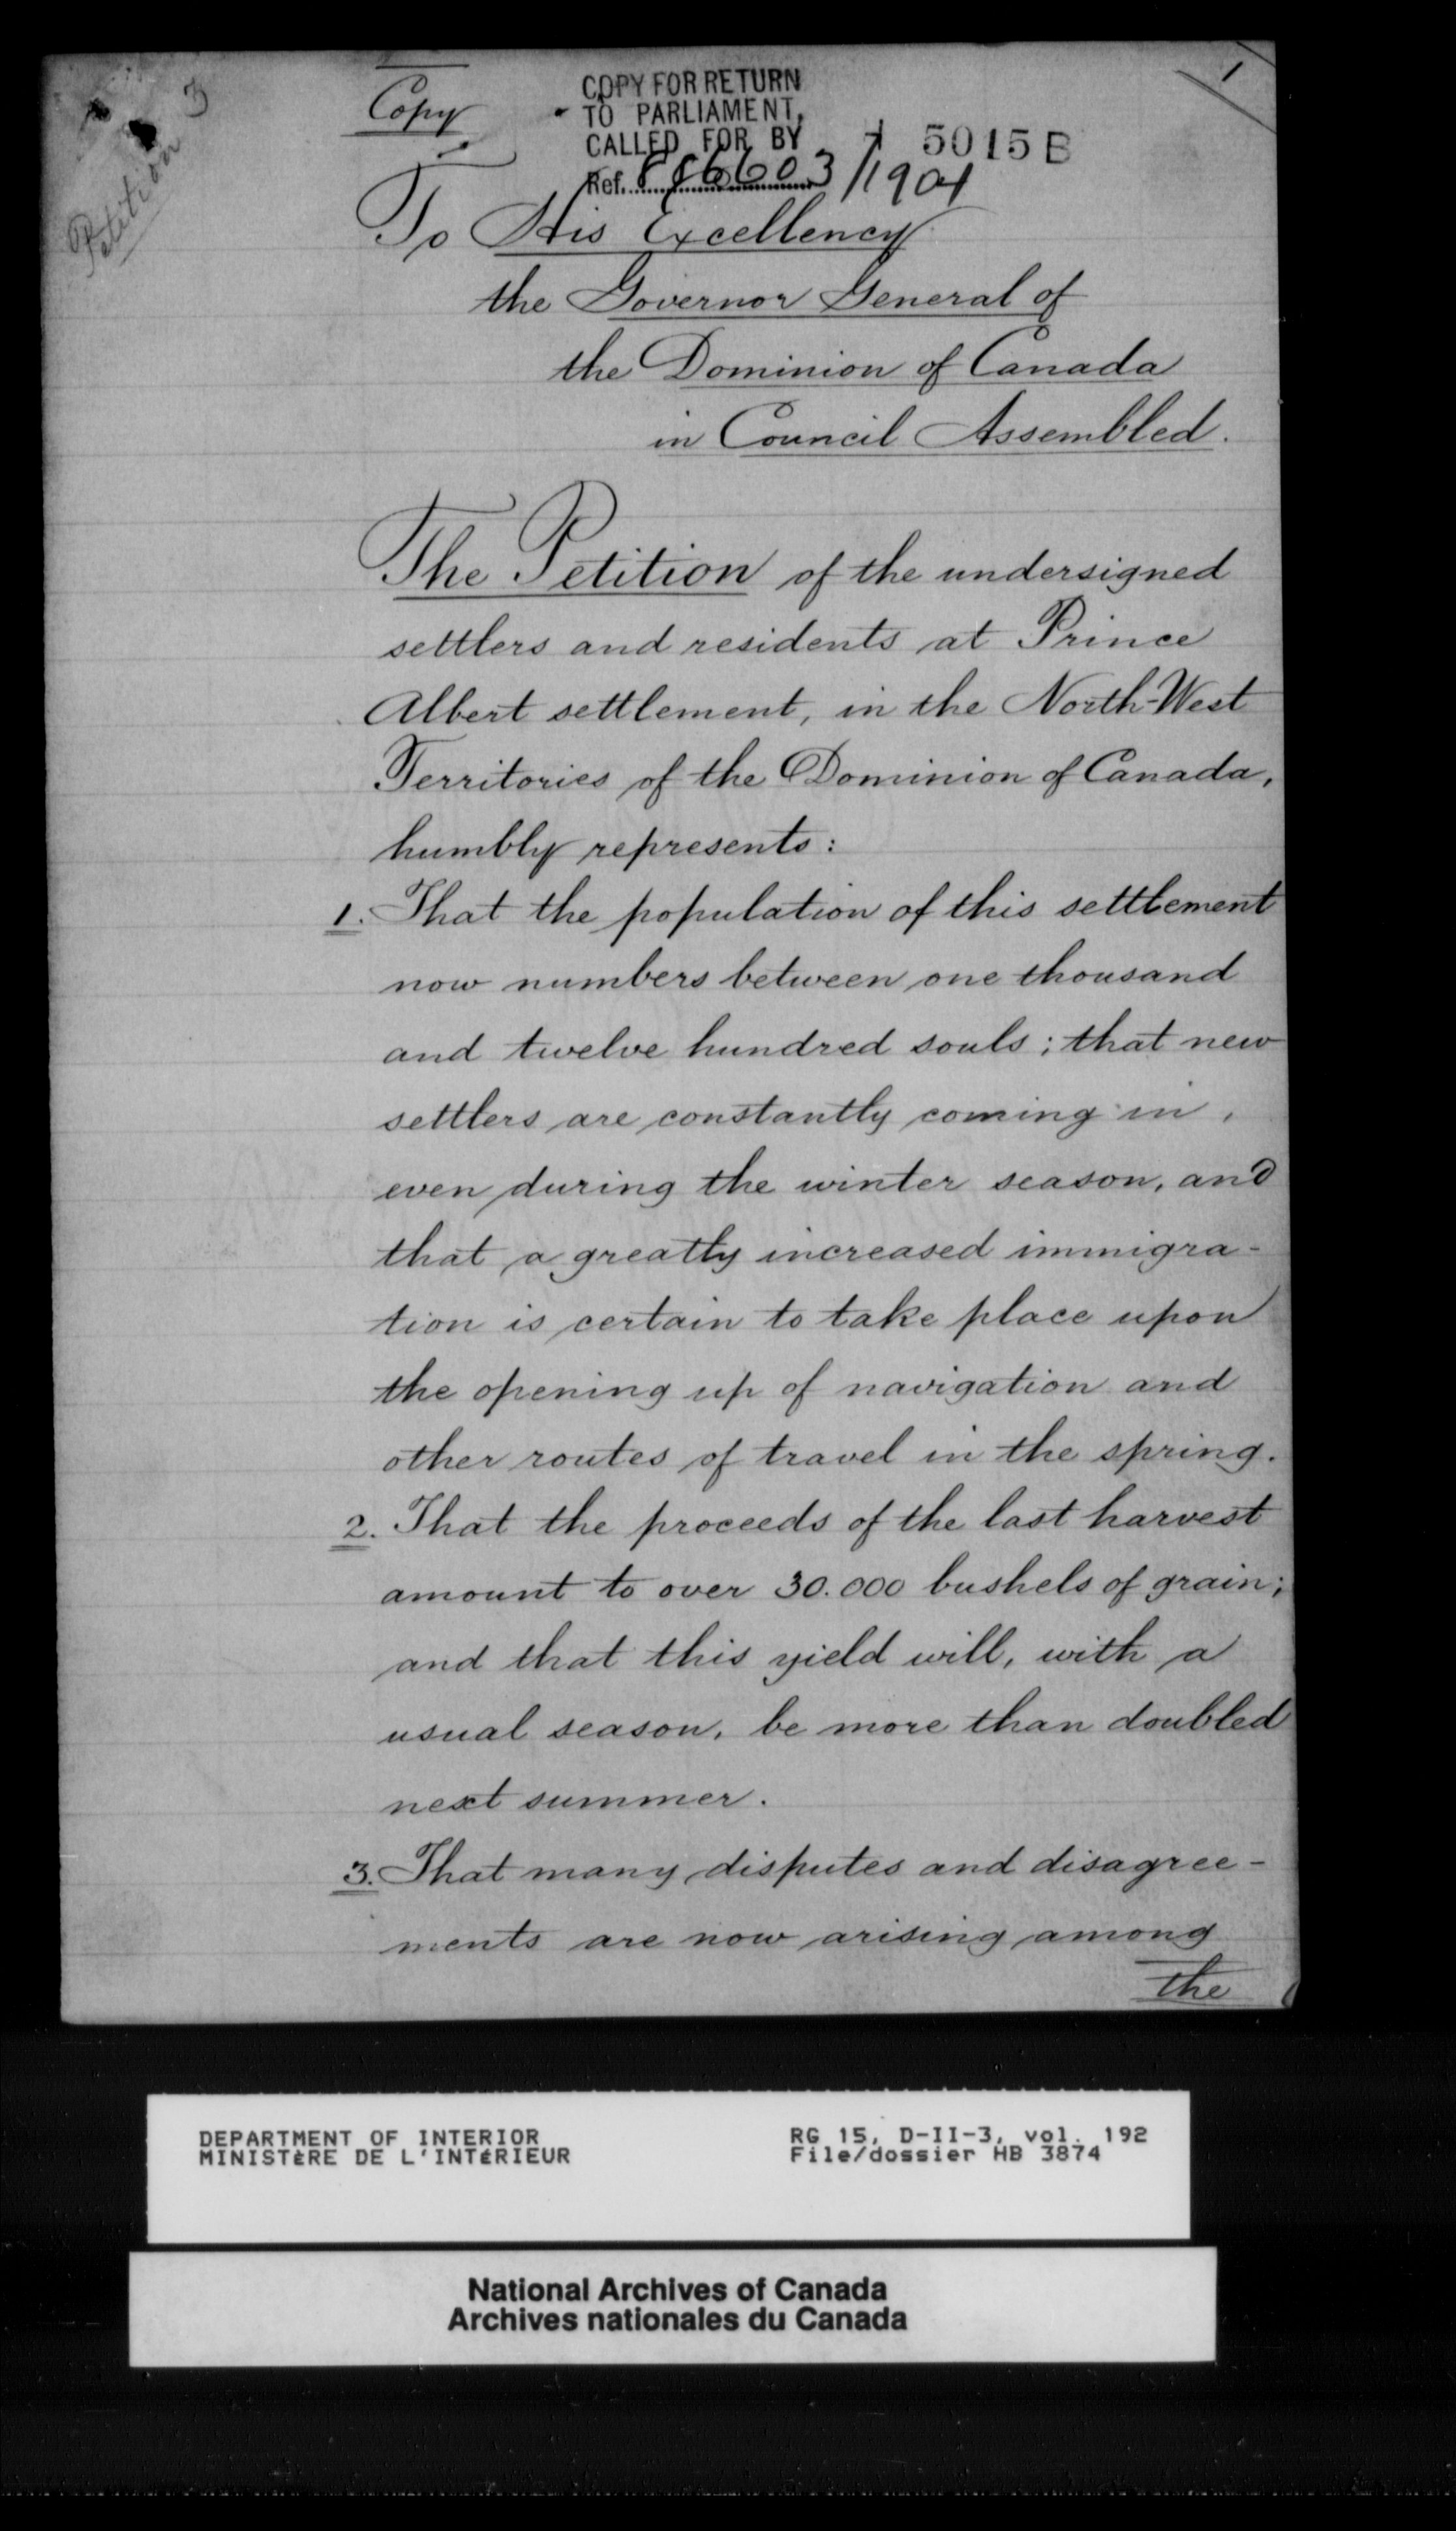 3
Petition
Copy
COPY FOR RETURN
TO PARLIAMENT,
CALLED FOR BY
Ref. 3/1901
5015 B
1
To His Excellency
the Governor General of
the Dominion of Canada
in Council Assembled.
The Petition of the undersigned
settlers and residents at Prince
Albert settlement, in the North-West
Territories of the Dominion of Canada,
humbly represents:
1. That the population of this settlement
now numbers between one thousand
and twelve hundred souls; that new
settlers are constantly coming in,
even during the winter season, and
that a greatly increased immigra-
tion is certain to take place upon
the opening up of navigation and
other routes of travel in the spring.
2. That the proceeds of the last harvest
amount to over 30.000 bushels of grain;
and that this yield will, with a
usual season, be more than doubled
next summer.
3. That many disputes and disagree-
ments are now arising among
the
DEPARTMENT OF INTERIOR
MINISTÈRE DE L'INTÉRIEUR
RG 15, D-II-3, vol. 192
File/dossier HB 3874
National Archives of Canada
Archives nationales du Canada